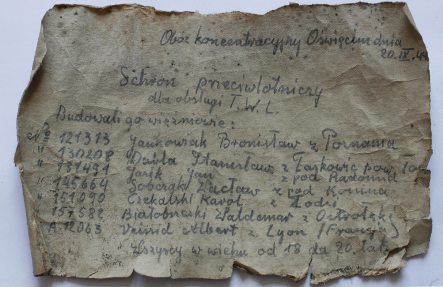 Obóz koncentracyjny Oświęcim dnia
20.IX.44
Schron przeciwlotniczy
dla obsługi T.W.L.
Budowali go więźniowie:
Nr 121313 Jankowiak Bronisław z Poznania
" 130208 Dubla Stanisław z Łaskowic pow.
" 131491 Jasik Jan z pod Radomia
" 145664 Sobczak Wacław z pod Konina
" 151090 Czekalski Karol z Łodzi
" 157582 Białobrzeski Waldemar z Ostrołęki
A. 12063 Veisid Albert z Lyon (Francja)
Wszyscy w wieku od 18 do 20 lat